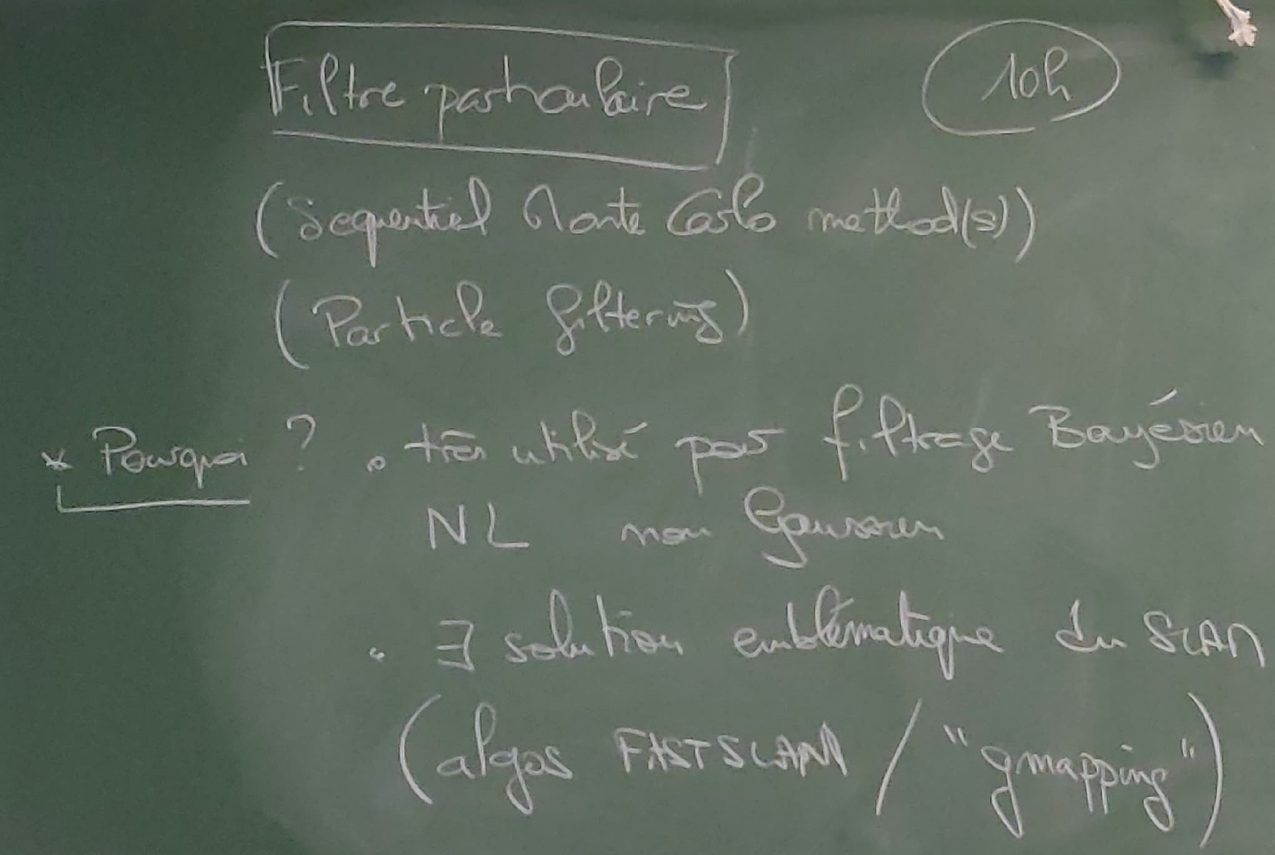 Filtre particulaire
10h
(Sequential Monte Carlo method(s))
(Particle filtering)
* Pourquoi ? • très utilisé pour filtrage Bayésien
NL non Gaussien
• ∃ solution emblématique du SLAM
(algos FASTSLAM / "gmapping")